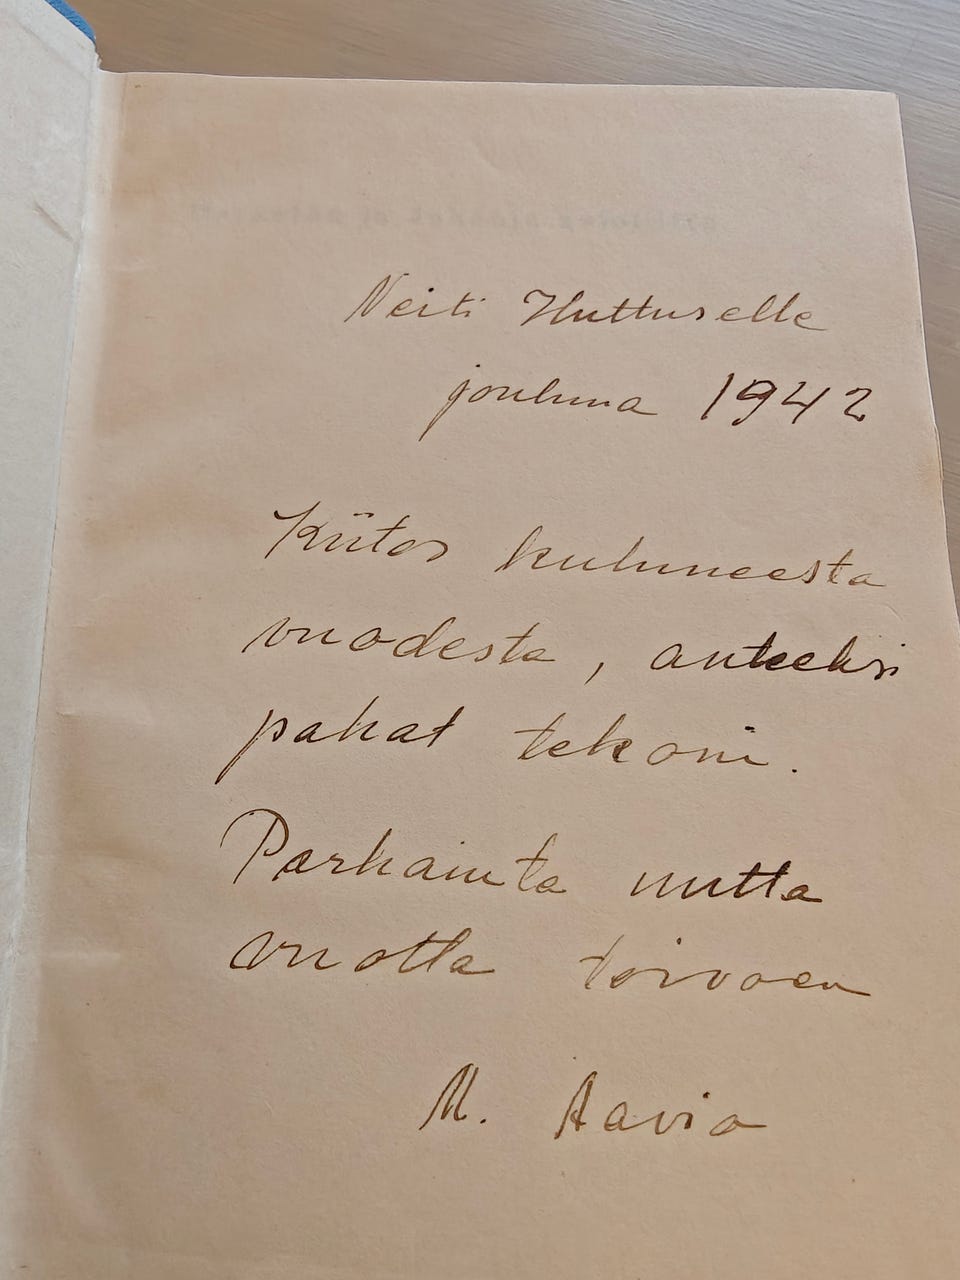 Neiti Huttuselle
jouluna 1942
Kiitos kuluneesta
vuodesta, anteeksi
pahat tekoni.
Parhainta uutta
vuotta toivoen
M. Aavio